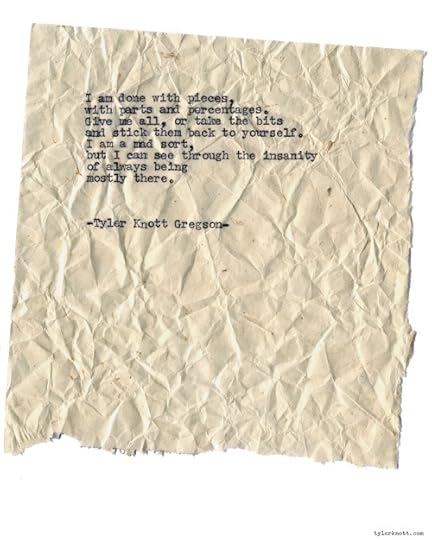 I am done with pieces,
with parts and percentages.
Give me all, or take the bits
and stick them back to yourself.
I am a mad sort,
but I can see through the insanity
of always being
mostly there.
-Tyler Knott Gregson-
tylerknott.com